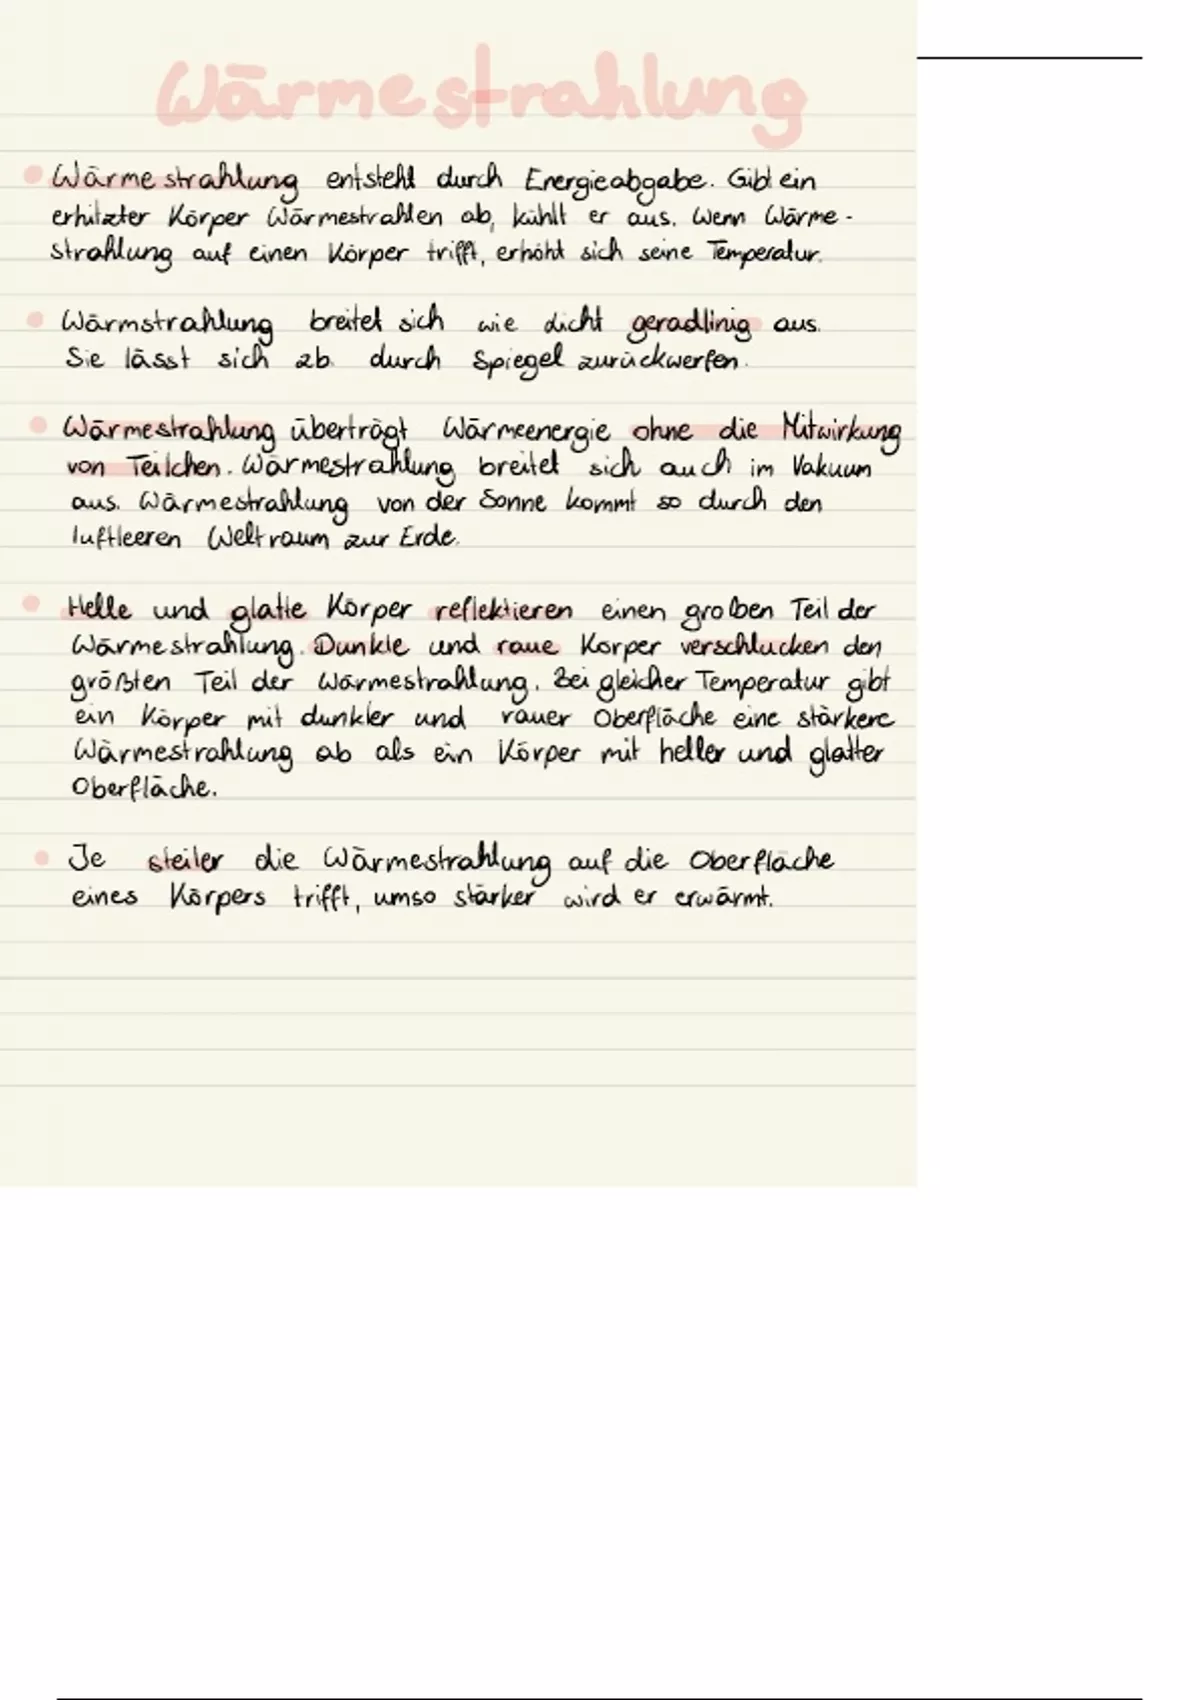 Wärmestrahlung
• Wärmestrahlung entsteht durch Energieabgabe. Gibt ein
erhitzter Körper Wärmestrahlen ab, kühlt er aus. Wenn Wärme-
strahlung auf einen Körper trifft, erhöht sich seine Temperatur.
• Wärmstrahlung breitet sich wie dicht geradlinig aus.
Sie lässt sich zb. durch Spiegel zurückwerfen.
• Wärmestrahlung überträgt Wärmeenergie ohne die Mitwirkung
von Teilchen. Wärmestrahlung breitet sich auch im Vakuum
aus. Wärmestrahlung von der Sonne kommt so durch den
luftleeren Weltraum zur Erde.
• Helle und glatte Körper reflektieren einen großen Teil der
Wärmestrahlung. Dunkle und raue Körper verschlucken den
größten Teil der Wärmestrahlung. Bei gleicher Temperatur gibt
ein Körper mit dunkler und rauer Oberfläche eine stärkere
Wärmestrahlung ab als ein Körper mit heller und glatter
Oberfläche.
• Je steiler die Wärmestrahlung auf die Oberfläche
eines Körpers trifft, umso stärker wird er erwärmt.